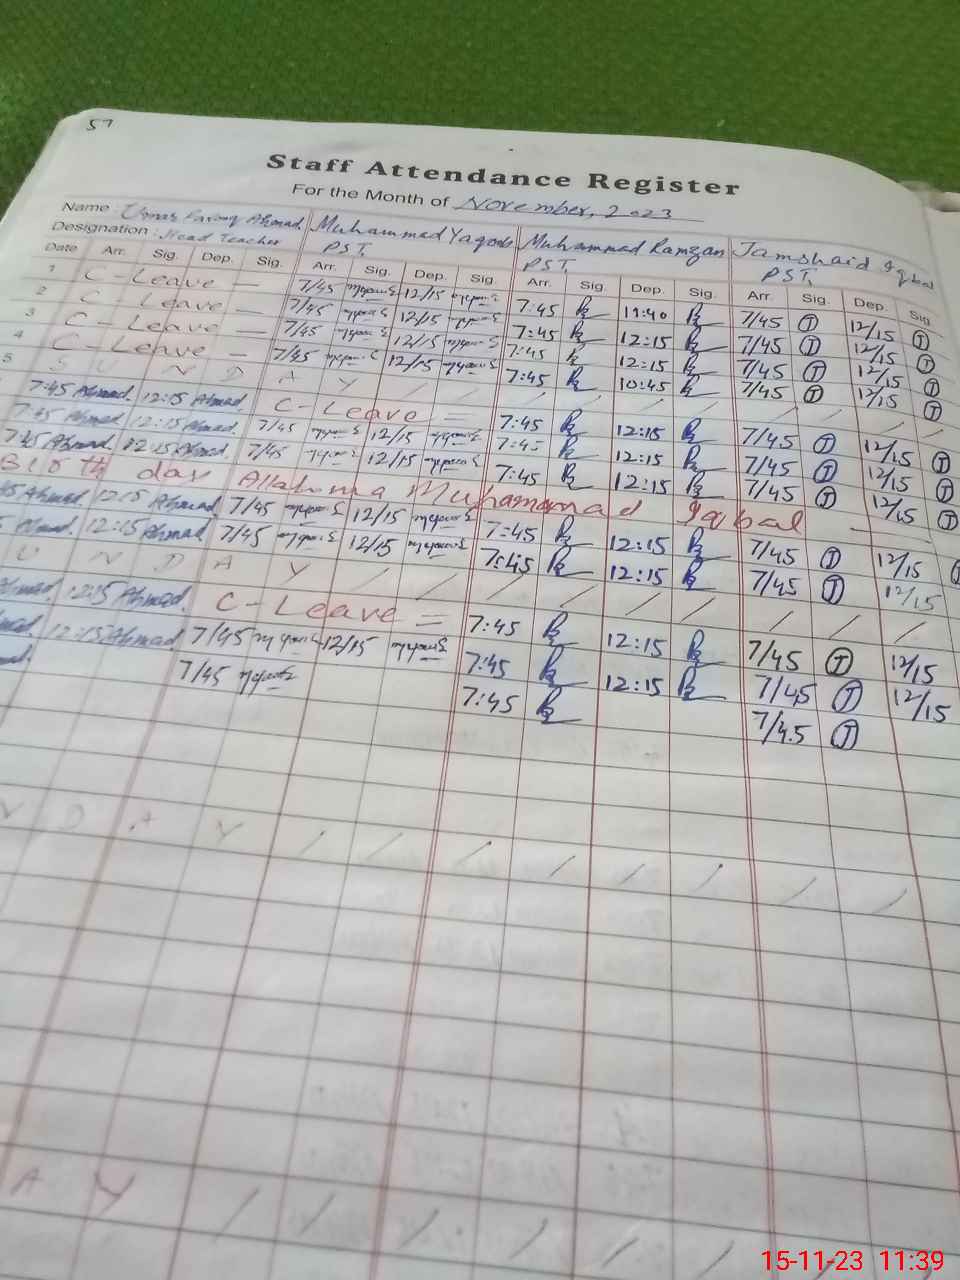 57
Staff Attendance Register
For the Month of November, 2023
Name : Usman Farooq Ahmad Muhammad Yaqoob Muhammad Ramzan Jamshaid Iqbal
Designation : Head Teacher PST, PST, PST,
Date Arr. Sig. Dep. Sig. Arr. Sig. Dep. Sig. Arr. Sig. Dep. Sig. Arr. Sig. Dep. Sig.
1 C-Leave — 7/45 12/15 7:45 11:40 7/45 T 12/15 T
2 C-Leave — 7/45 12/15 7:45 12:15 7/45 T 12/15 T
3 C-Leave 7/45 12/15 7:45 12:15 7/45 T 12/15 T
4 C-Leave — 7/45 12/15 7:45 10:45 7/45 T 12/15 T
5 S U N D A Y / / / / / / / / / /
7:45 Ahmad. 12:15 Ahmad. C-Leave = 7:45 12:15 7/45 T 12/15 T
7:45 Ahmad. 12:15 Ahmad. 7/45 12/15 7:45 12:15 7/45 T 12/15 T
7:45 Ahmad. 12:15 Ahmad. 7/45 12/15 7:45 12:15 7/45 T 12/15 T
Birth day Allahma Muhammad Iqbal
45 Ahmad. 12:15 Ahmad 7/45 12/15 7:45 12:15 7/45 T 12/15 T
Ahmad. 12:15 Ahmad 7/45 12/15 7:45 12:15 7/45 T 12/15
U N D A Y / / / / / / / / /
Ahmad. 12:15 Ahmad. C-Leave = 7:45 12:15 7/45 T 12/15
mad. 12:15 Ahmad 7/45 12/15 7:45 12:15 7/45 T 12/15
mad. 7/45 7:45 7/45 T
N D A Y / / / / / / / /
A Y / / / / / / /
15-11-23 11:39